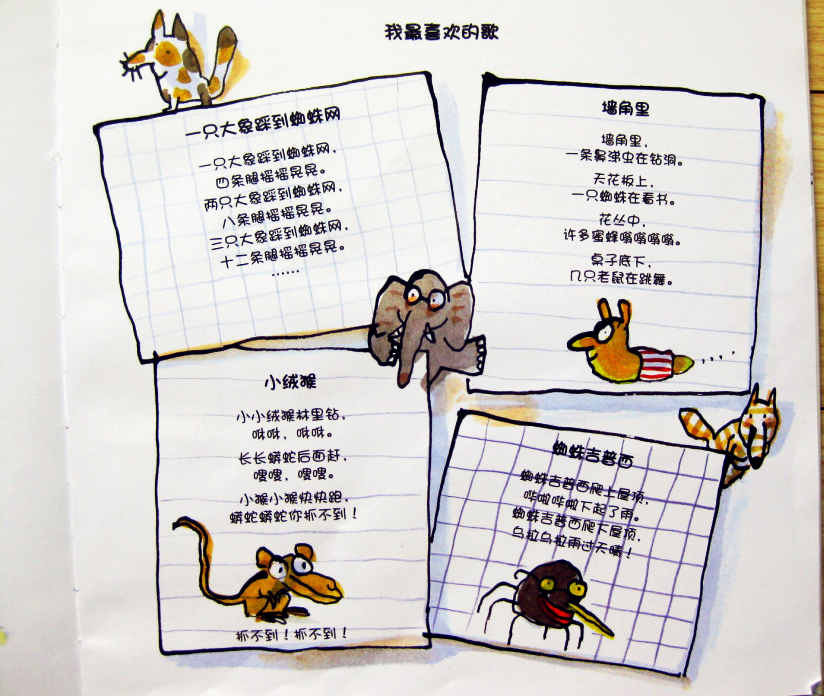 我最喜欢的歌
一只大象踩到蜘蛛网
一只大象踩到蜘蛛网，
四条腿摇摇晃晃。
两只大象踩到蜘蛛网，
八条腿摇摇晃晃。
三只大象踩到蜘蛛网，
十二条腿摇摇晃晃。
……
墙角里
墙角里，
一条鼻涕虫在钻洞。
天花板上，
一只蜘蛛在看书。
花丛中，
许多蜜蜂嗡嗡嗡嗡。
桌子底下，
几只老鼠在跳舞。
小绒猴
小小绒猴林里钻，
咻咻，咻咻。
长长蟒蛇后面赶，
嗖嗖，嗖嗖。
小猴小猴快快跑，
蟒蛇蟒蛇你抓不到！
抓不到！抓不到！
蜘蛛吉普西
蜘蛛吉普西爬上屋顶，
哗啦哗啦下起了雨。
蜘蛛吉普西爬下屋顶，
乌拉乌拉雨过天晴！